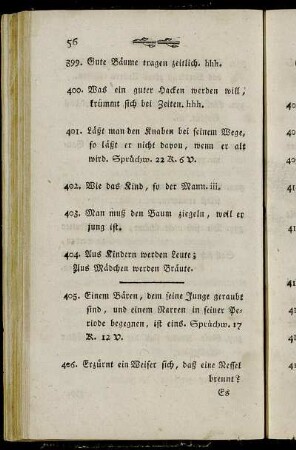 56
399. Gute Bäume tragen zeitlich. hhh.
400. Was ein guter Hacken werden will,
krümmt sich bei Zeiten. hhh.
401. Läßt man den Knaben bei seinem Wege,
so läßt er nicht davon, wenn er alt
wird. Sprüchw. 22 K. 6 V.
402. Wie das Kind, so der Mann. iii.
403. Man muß den Baum ziegeln, weil er
jung ist.
404. Aus Kindern werden Leute;
Aus Mädchen werden Bräute.
405. Einem Bären, dem seine Junge geraubt
sind, und einem Narren in seiner Pe-
riode begegnen, ist eins. Sprüchw. 17
K. 12 V.
406. Erzürnt ein Weiser sich, daß eine Nessel
brennt?
Es